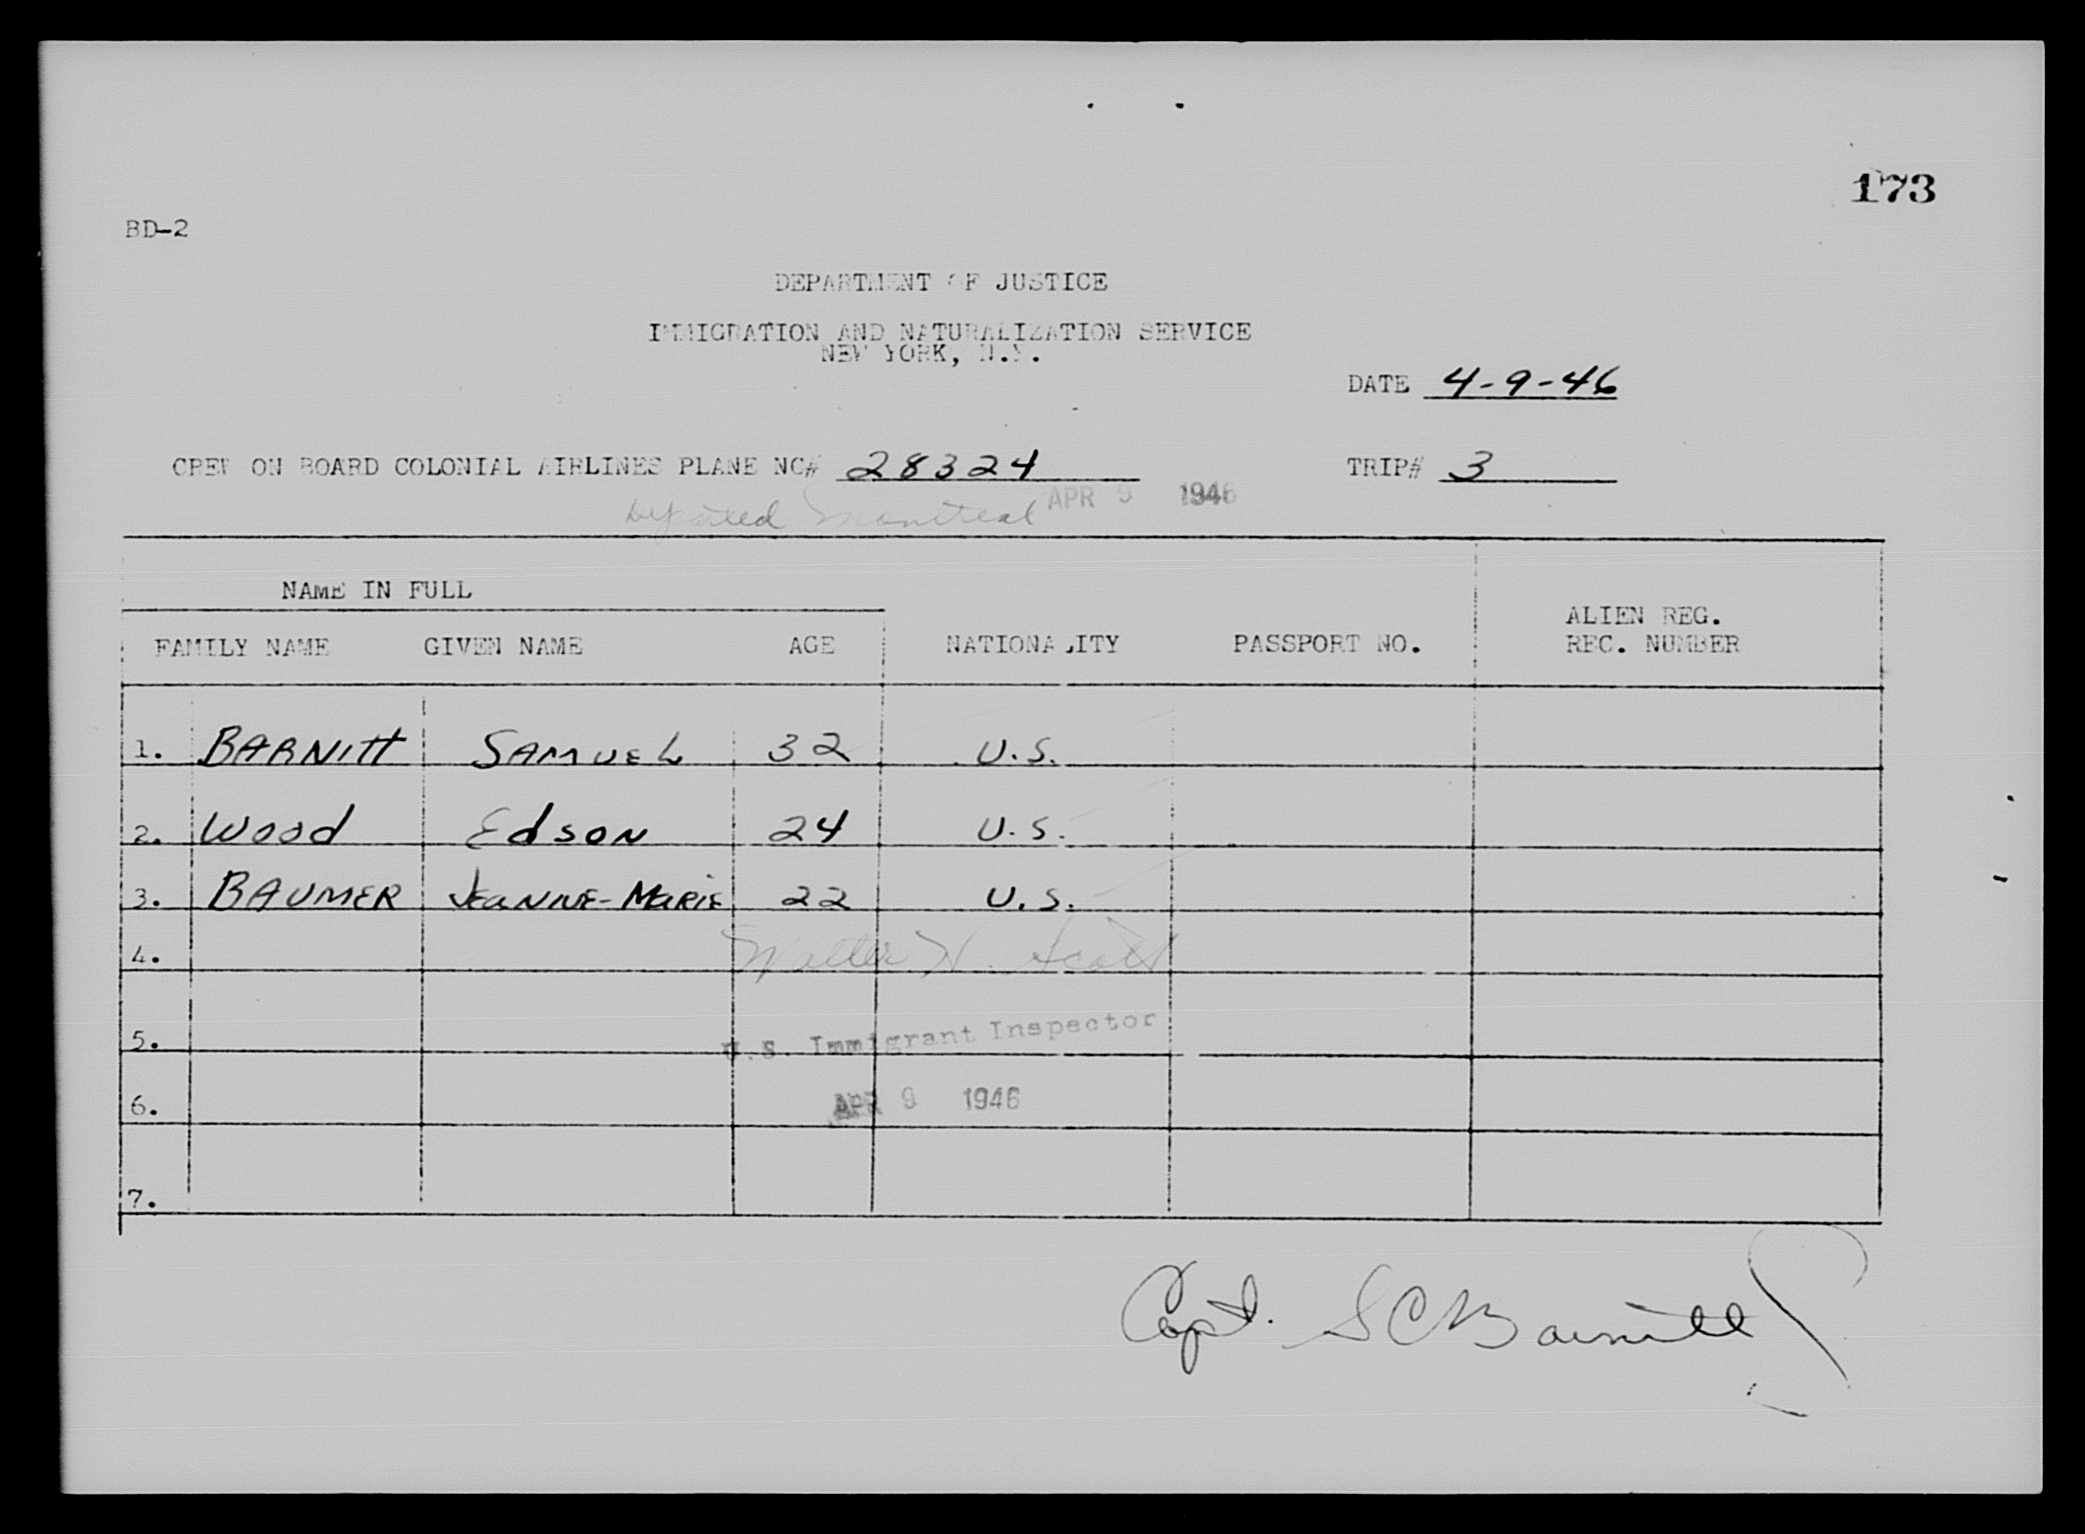 173
BD-2
DEPARTMENT OF JUSTICE
IMMIGRATION AND NATURALIZATION SERVICE
NEW YORK, N.Y.
DATE 4-9-46
CREW ON BOARD COLONIAL AIRLINES PLANE NC# 28324 TRIP# 3
Departed Montreal APR 9 1946
NAME IN FULL
FAMILY NAME GIVEN NAME AGE NATIONALITY PASSPORT NO. ALIEN REG. REC. NUMBER
1. BARNITT SAMUEL 32 U.S.
2. Wood Edson 24 U.S.
3. BAUMER JEANNE-MARIE 22 U.S.
4. Walter H. Scott
5. U.S. Immigrant Inspector
6. APR 9 1946
7.
Capt. S C Barnitt